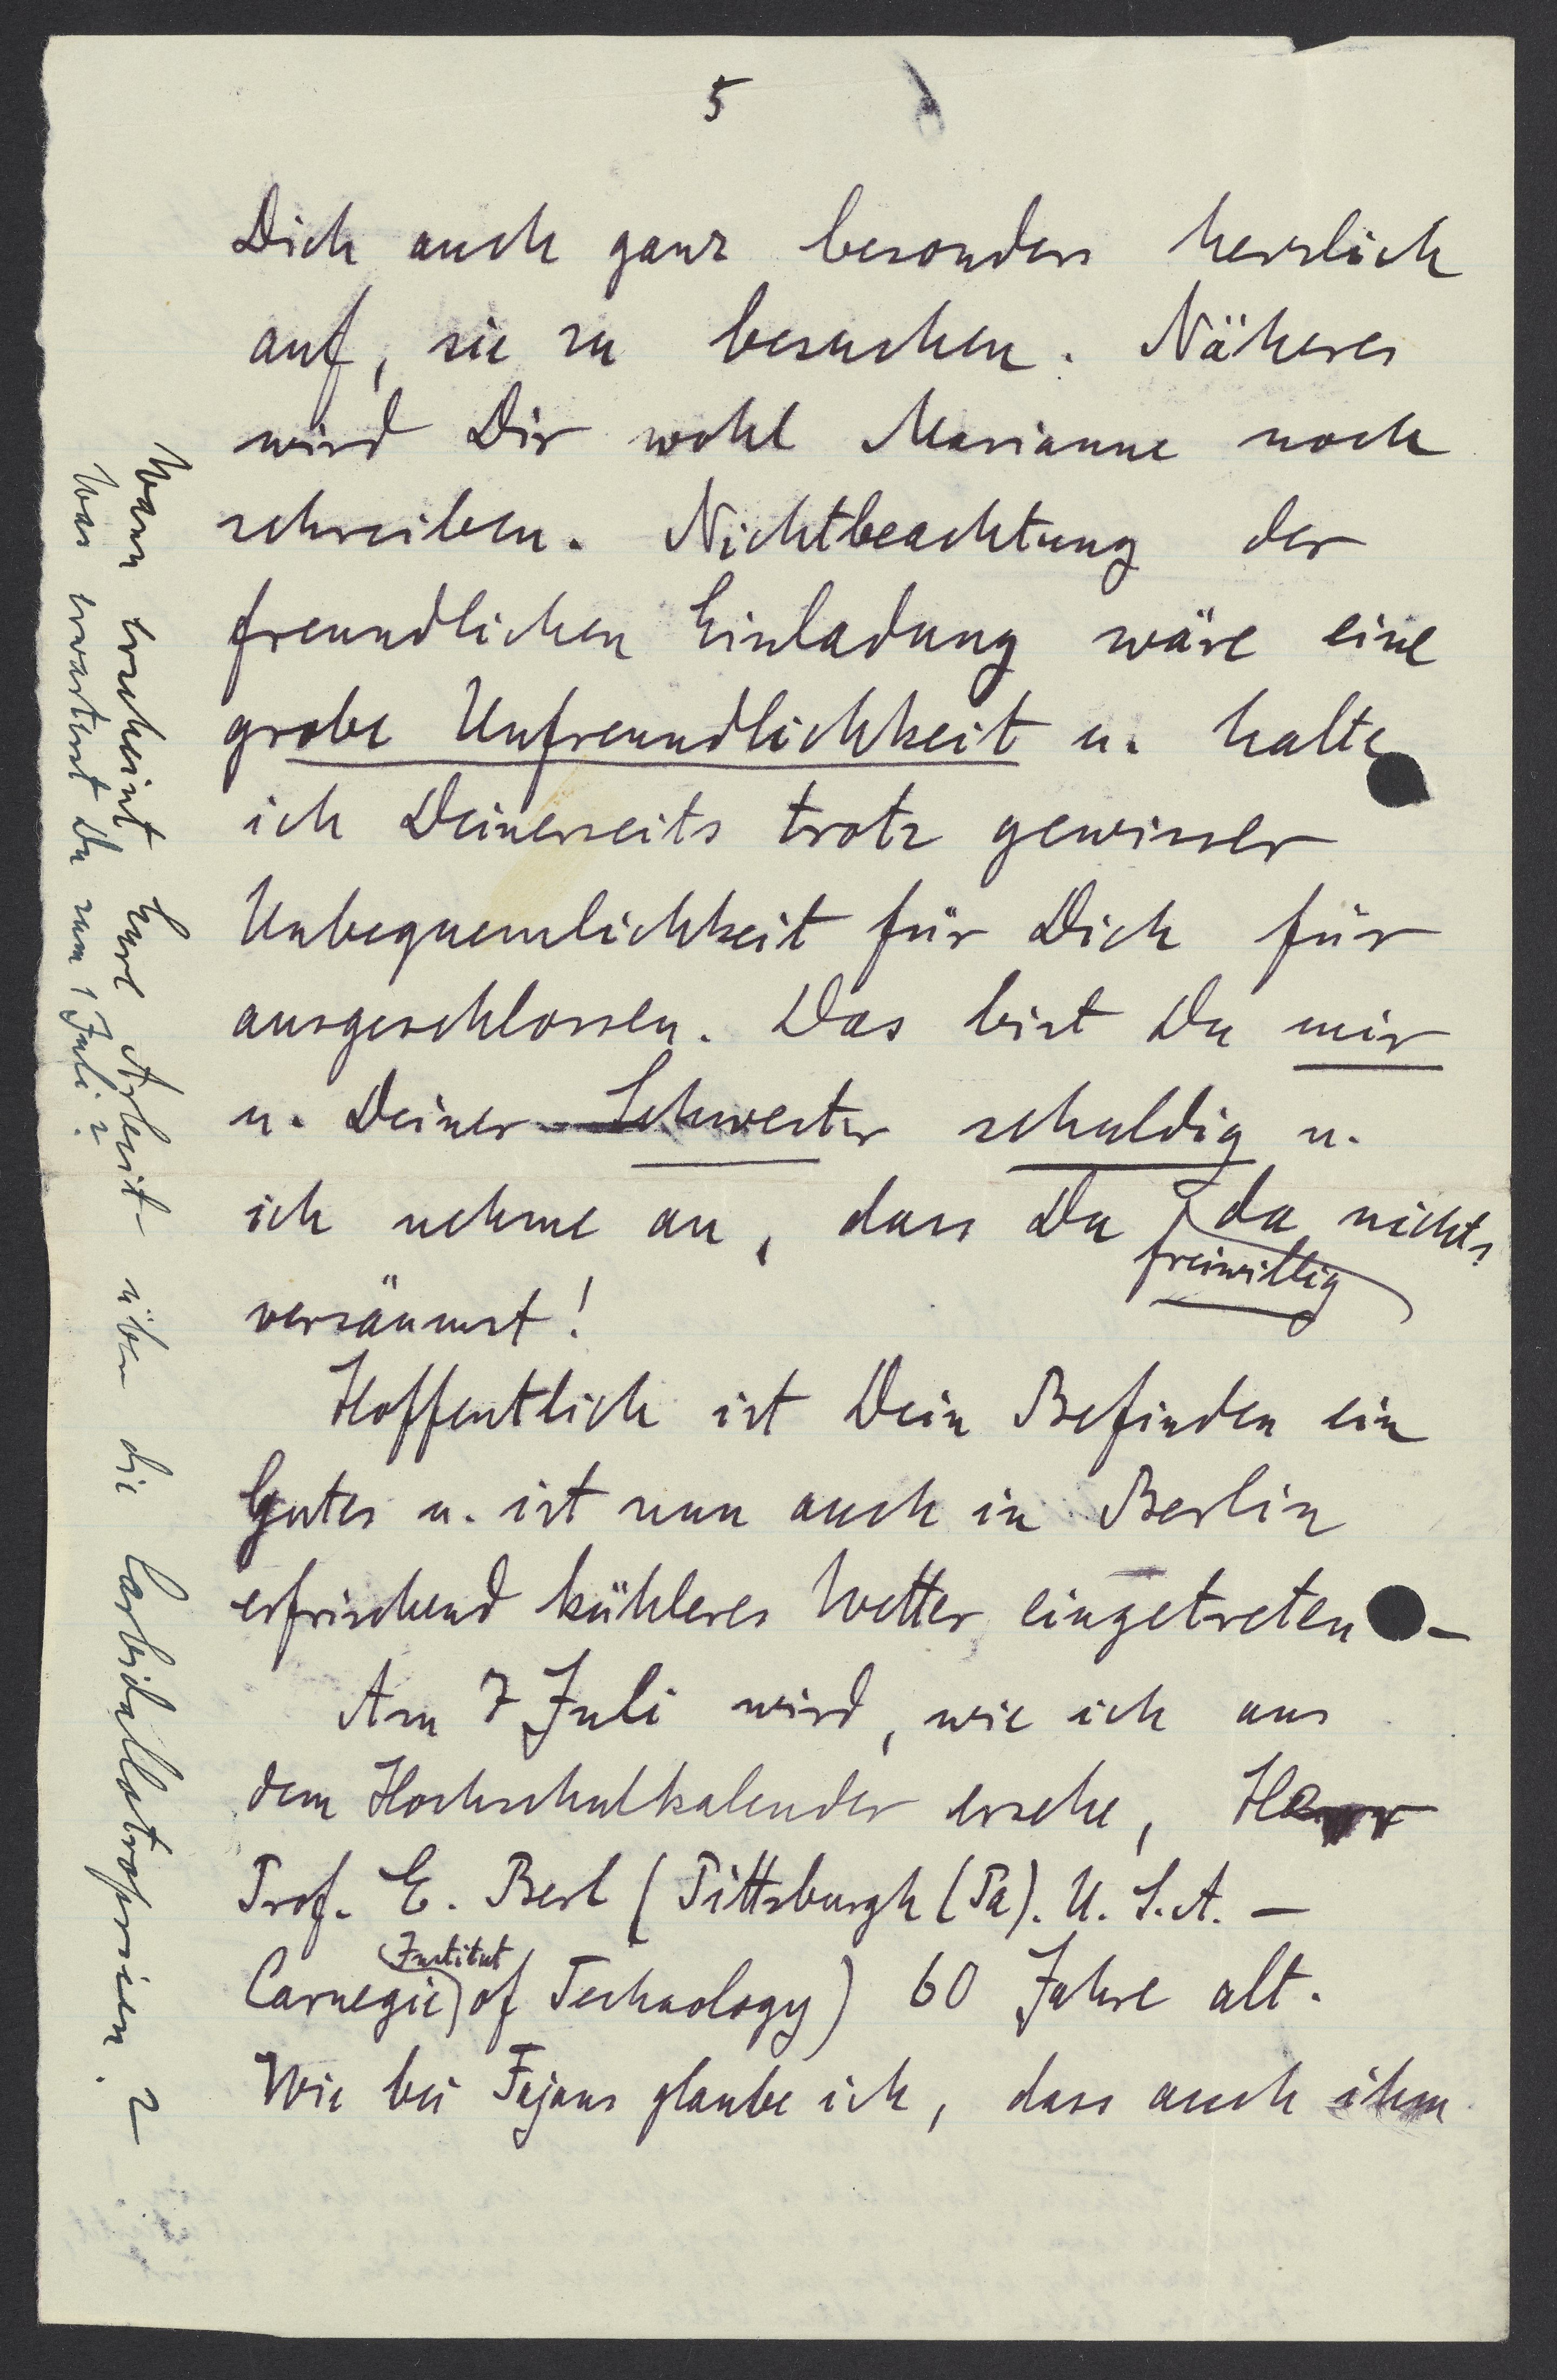 5
Dich auch ganz besonders herzlich
auf, sie zu besuchen. Näheres
wird Dir wohl Marianne noch
schreiben. Nichtbeachtung der
freundlichen Einladung wäre eine
grobe Unfreundlichkeit u. halte
ich Deinerseits trotz gewisser
Unbequemlichkeit für Dich für
ausgeschlossen. Das bist Du mir
u. Deiner Schwester schuldig u.
ich nehme an, dass Du da nichts
freiwillig
versäumst!
Hoffentlich ist Dein Befinden ein
Gutes u. ist nun auch in Berlin
erfrischend kühleres Wetter eingetreten. –
Am 7 Juli wird, wie ich aus
dem Hochschulkalender ersehe, Herr
Prof. E. Berl (Pittsburgh (Pa). U.S.A. –
Institut
Carnegie of Technology) 60 Jahre alt.
Wie bei Fajans glaube ich, dass auch ihm
Wann erscheint Eure Arbeit über die Carbidallotropieen?
Was erwartest Du zum 1 Juli?